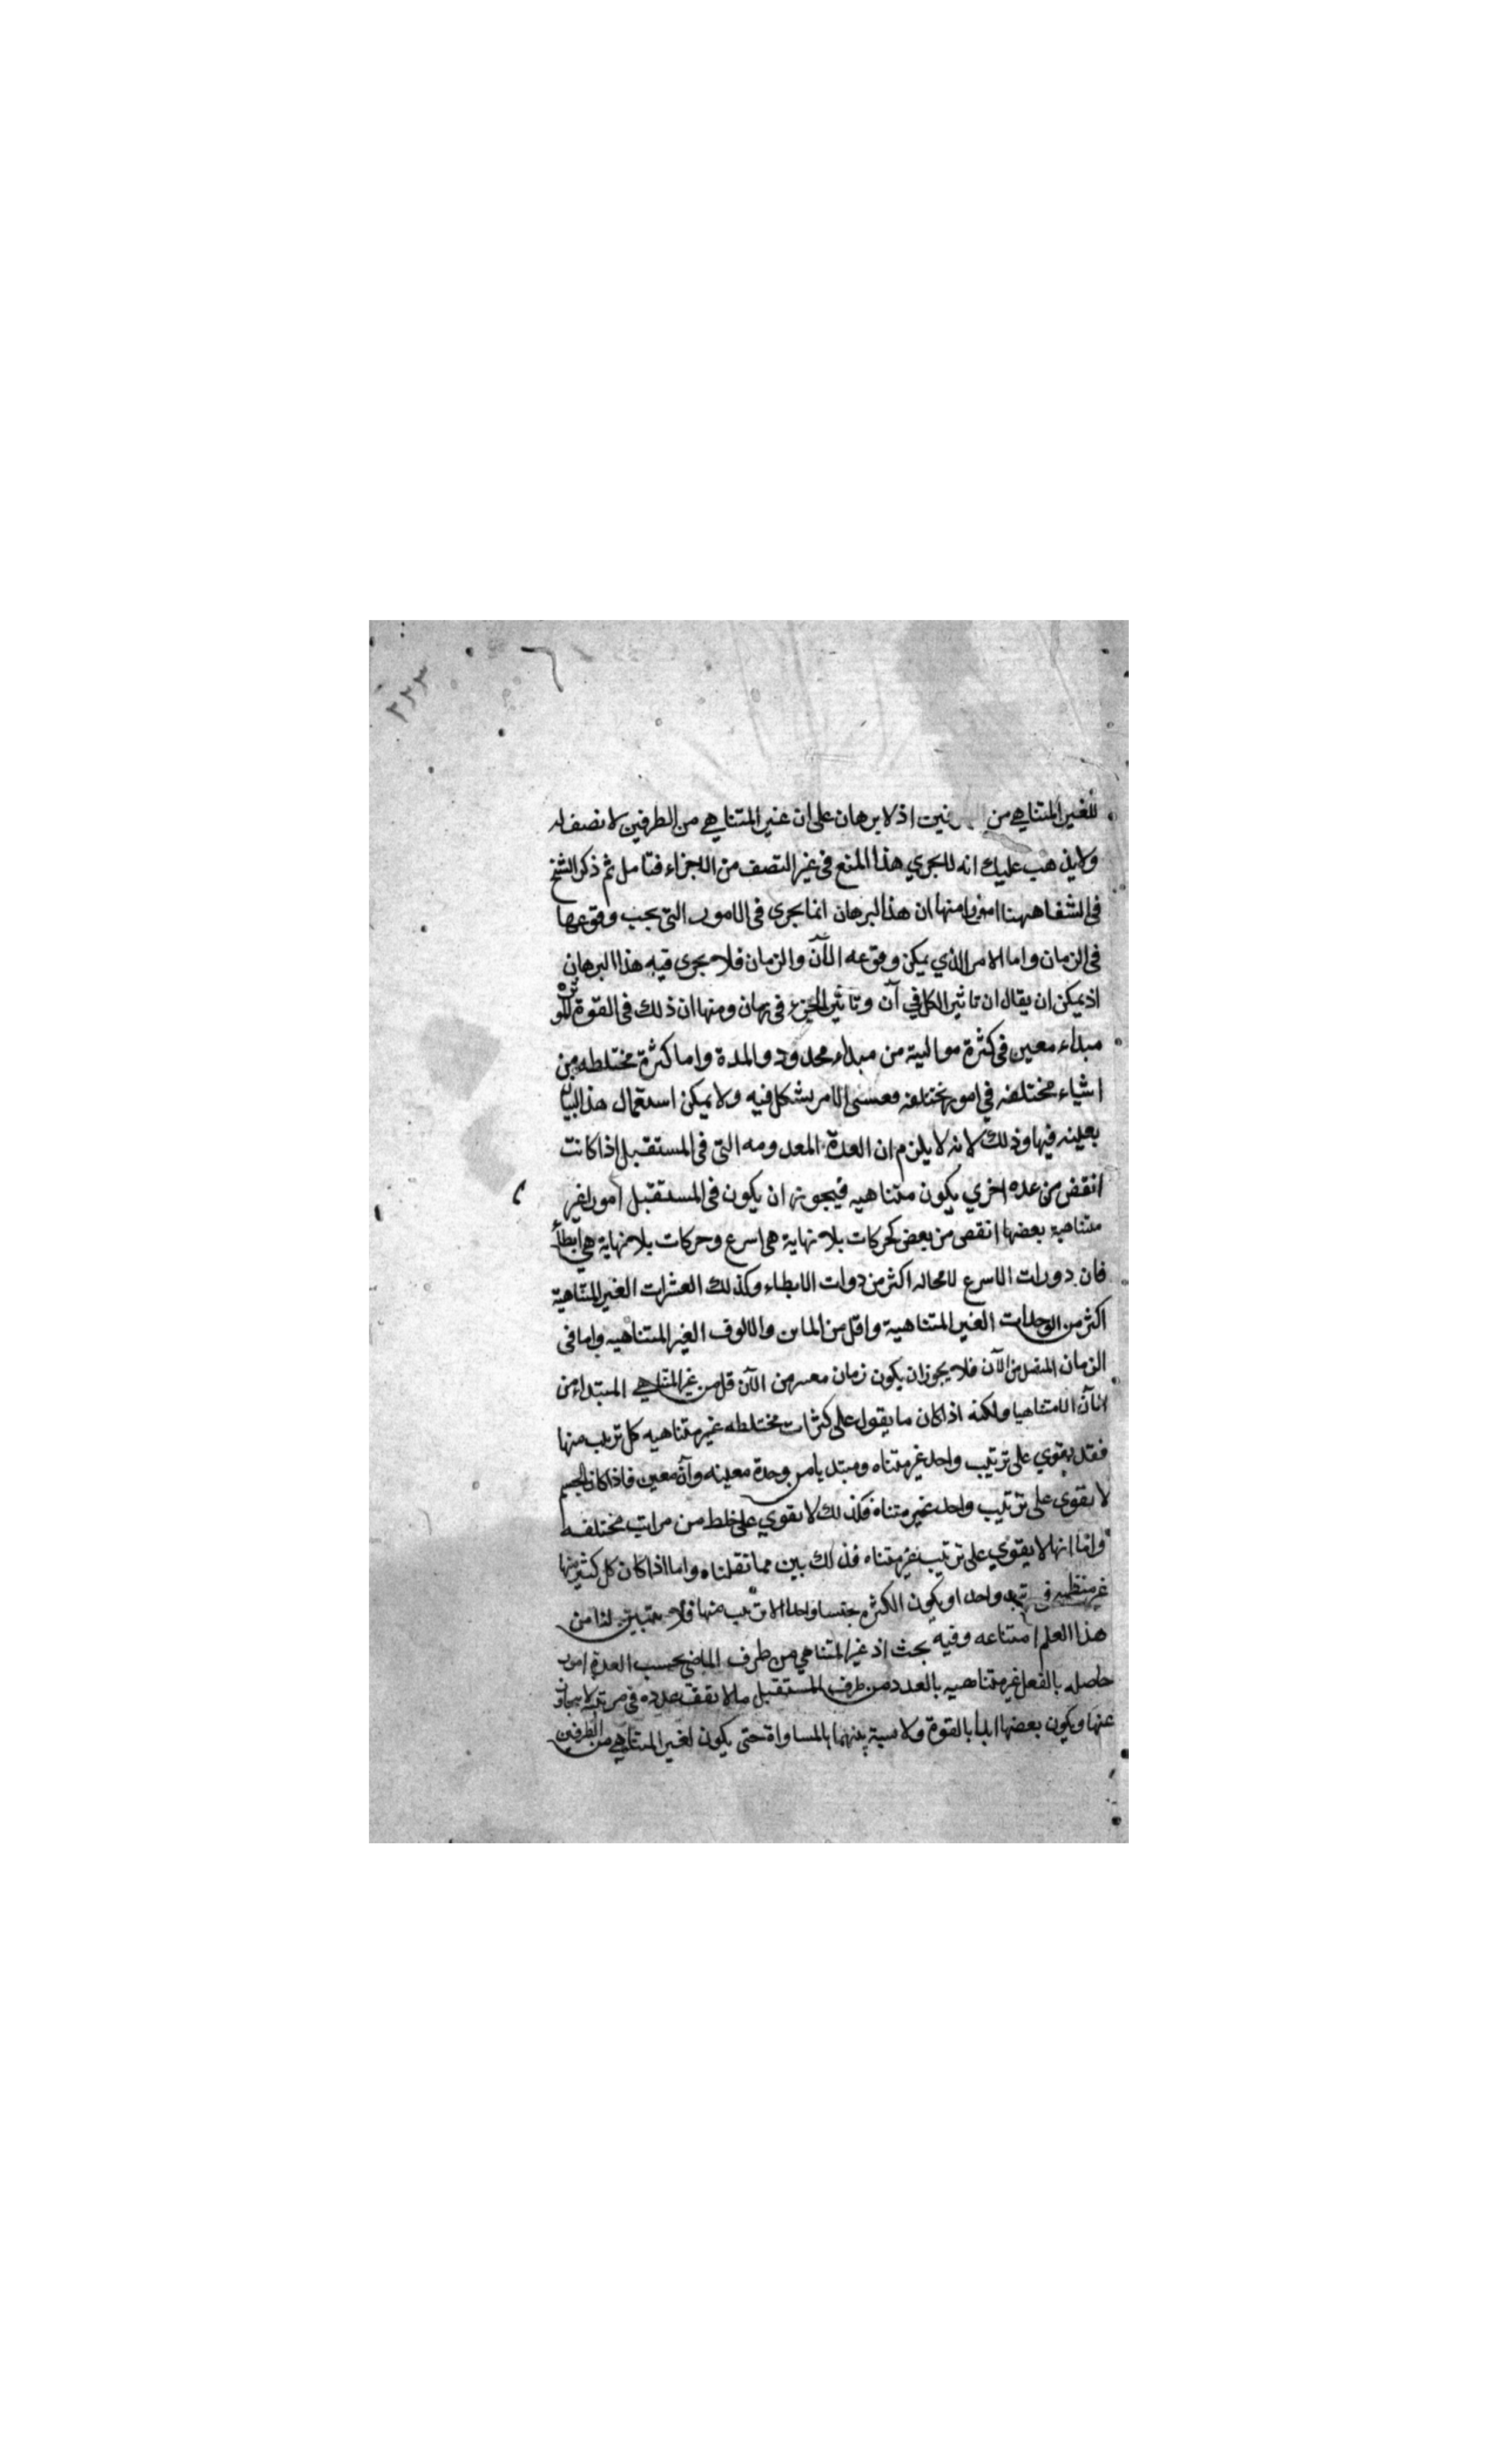 ٢٢٣
للغير المتناهي من اذ لا برهان على ان غير المتناهي من الطرفين لا نصف له
ولا يذهب عليك انه لا يجري هذا المنع في غير النصف من الاجزاء فتامل ثم ذكر الشيخ
في الشفا ههنا امورا منها ان هذا البرهان انما يجري في الامور التي يجب وقوعها
في الزمان واما الامر الذي يمكن وقوعه الآن والزمان فلا يجري فيه هذا البرهان
اذ يمكن ان يقال ان تاثير الكل في آن وتاثير الجزء في زمان ومنها ان ذلك في القوة
مبداء معين في كثرة موالية من مبداء محدود والمدة واما كثرة مختلطه من
اشياء مختلفه في امور مختلفه فعسى الامر يشكل فيه ولا يمكن استعمال هذا البيان
بعينه فيها وذلك لانه لا يلزم ان العدة المعدومه التي في المستقبل اذا كانت
انقص من عده اخري يكون متناهيه فيجوز ان يكون في المستقبل امور غير
متناهية بعضها انقص من بعض كحركات بلا نهاية هي اسرع وحركات بلا نهاية هي ابطأ
فان دورات الاسرع لا محاله اكثر من دوات الابطاء وكذلك العشرات الغير المتناهية
اكثر من الوحدات الغير المتناهية واقل من الماىن والالوف الغير المتناهيه واما في
الزمان المتصل من الآن فلا يجوز ان يكون زمان معىں من الآن قل من غير المتناهي المبتداء من
الآن الا متناهيا ولكنه اذا كان ما يقول على كثرات مختلطه غير متناهيه كل ترتيب منها
فقد يقوي على ترتيب واحد غير متناه ومبتديا من وحدة معينه وآن معين فاذا كان الجسم
لا يقوى على ترتيب واحد غير متناه فكذلك لا يقوي على خلط من مراتب مختلفه
واما انها لا يقوي على ترتيب غير متناه فذلك بين مما نقلناه واما اذا كان كل كثير منها
غير منتظمه في واحد او يكون الكثره جنسا واحدا لا ترتيب منها فلا يتبين لنا من
هذا العلم امتناعه وفيه بحث اذ غير المتناهي من طرف الماضي بحسب العدة امور
حاصله بالفعل غير متناهيه بالعدد من طرف المستقبل ما لا يقف عدده في مرتبه لا يتجاوز
عنها ويكون بعضها ابدا بالقوة ولا نسبة بينهما بالمساواة حتى يكون لغير المتناهي من الطرفين